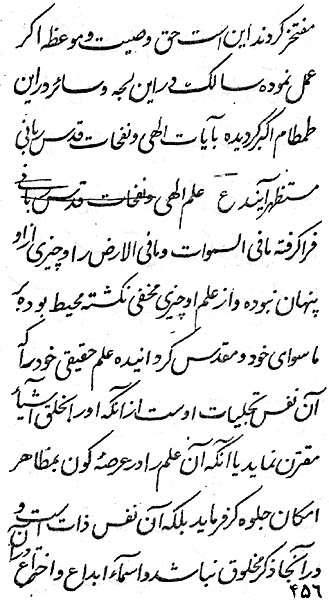 مفتخر کردند این است حق وصیت و موعظه اکر
عمل نموده سالک در این لجه و سائر در این
طمطام اکبر کردیده بآیات الهی و نفحات قدس ربانی
مستظهر آیند ع علم الهی و نفحات قدس ربانی
فرا کرفته ما فی السموات و ما فی الارض را و چیزی از او
پنهان نبوده و از علم او چیزی مخفی نکشته محیط بوده به
ماسوای خود و مقدس کردانیده علم حقیقی خود را که
آن نفس تجلیات اوست از انکه او را بخلق اشیآء
مقترن نماید یا انکه آن علم را در عرصهٔ کون بمظاهر
امکان جلوه کر فرماید بلکه آن نفس ذات است و
در آنجا ذکر مخلوق نباشد و اسمآء ابداع و اختراع در آن
۴۵۶